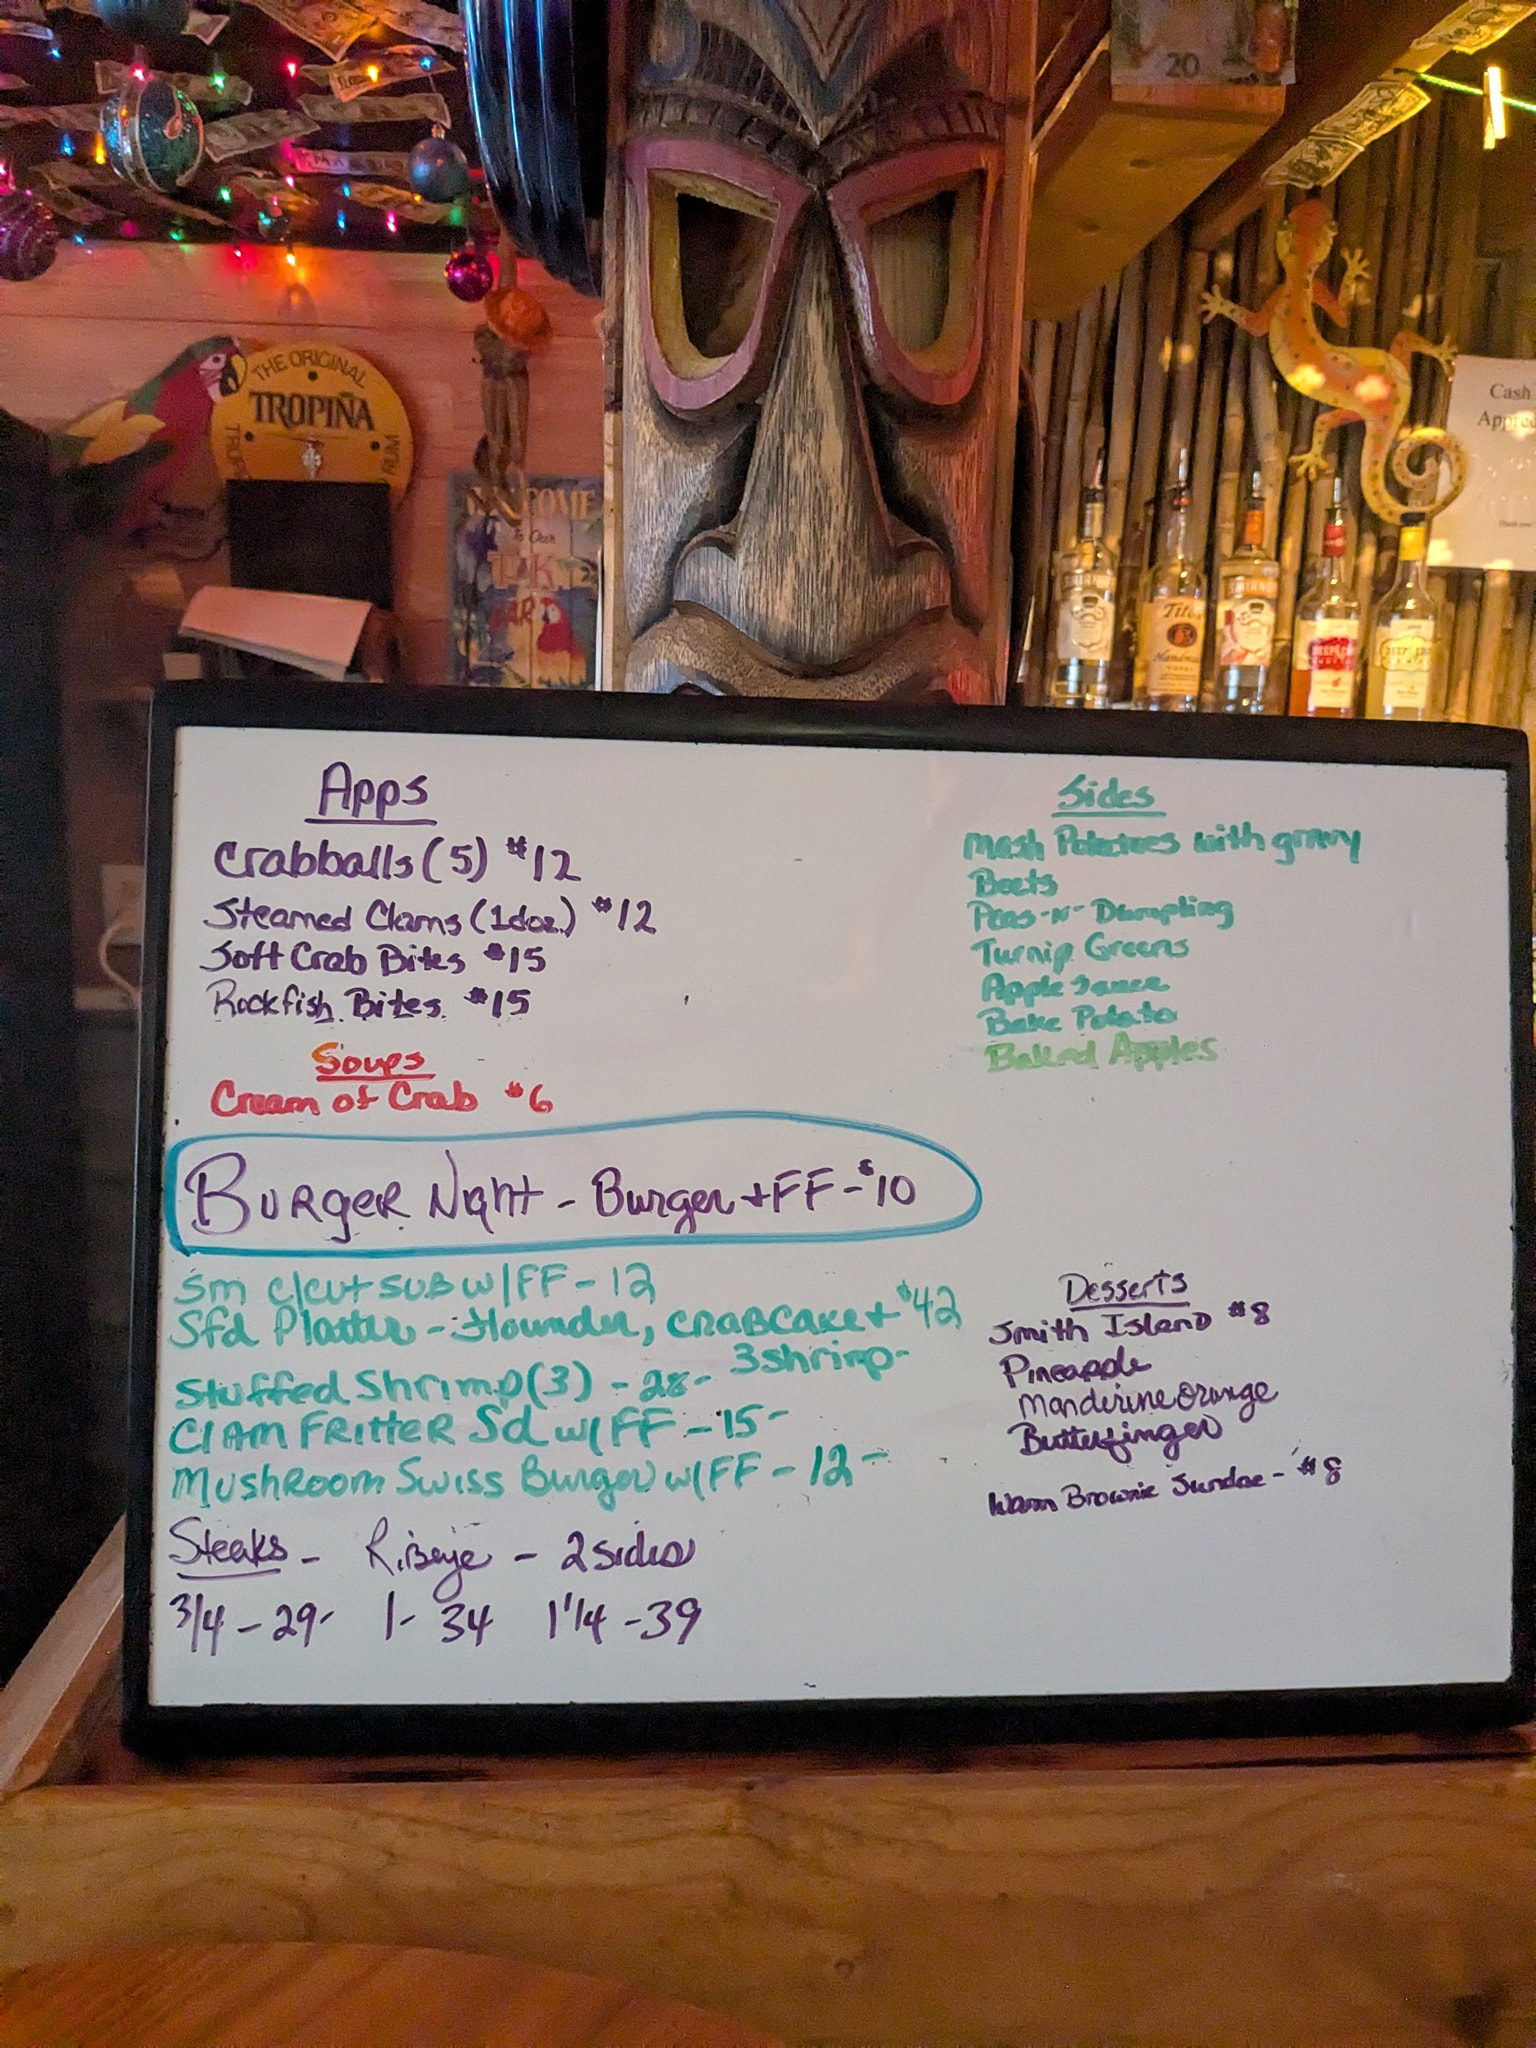 20
THE ORIGINAL
TROPIÑA
RUM
WELCOME
To Our
TIKI
BAR
Cash
SMIRNOFF
Tito's
Handmade
VODKA
SMIRNOFF
DEEP EDDY
DEEP EDDY
Apps
Crabballs (5) $12
Steamed Clams (1doz.) $12
Soft Crab Bites $15
Rockfish Bites $15
Soups
Cream of Crab $6
BURGER Night - Burger + FF - $10
Sm C/cut SUB w/ FF - 12
Sfd Platter - Flounder, CRABCAKE + $42
3 shrimp-
Stuffed Shrimp (3) - 28-
Clam FRITTER Sd w/ FF - 15-
MushRoom Swiss Burger w/ FF - 12-
Steaks - Ribeye - 2 sides
3/4 - 29- 1- 34 1 1/4 - 39
Sides
Mash Potatoes with gravy
Beets
Peas-N-Dumpling
Turnip Greens
Apple Sauce
Bake Potato
Baked Apples
Desserts
Smith Island $8
Pineapple
Manderine Orange
Butterfinger
Warm Brownie Sundae - $8